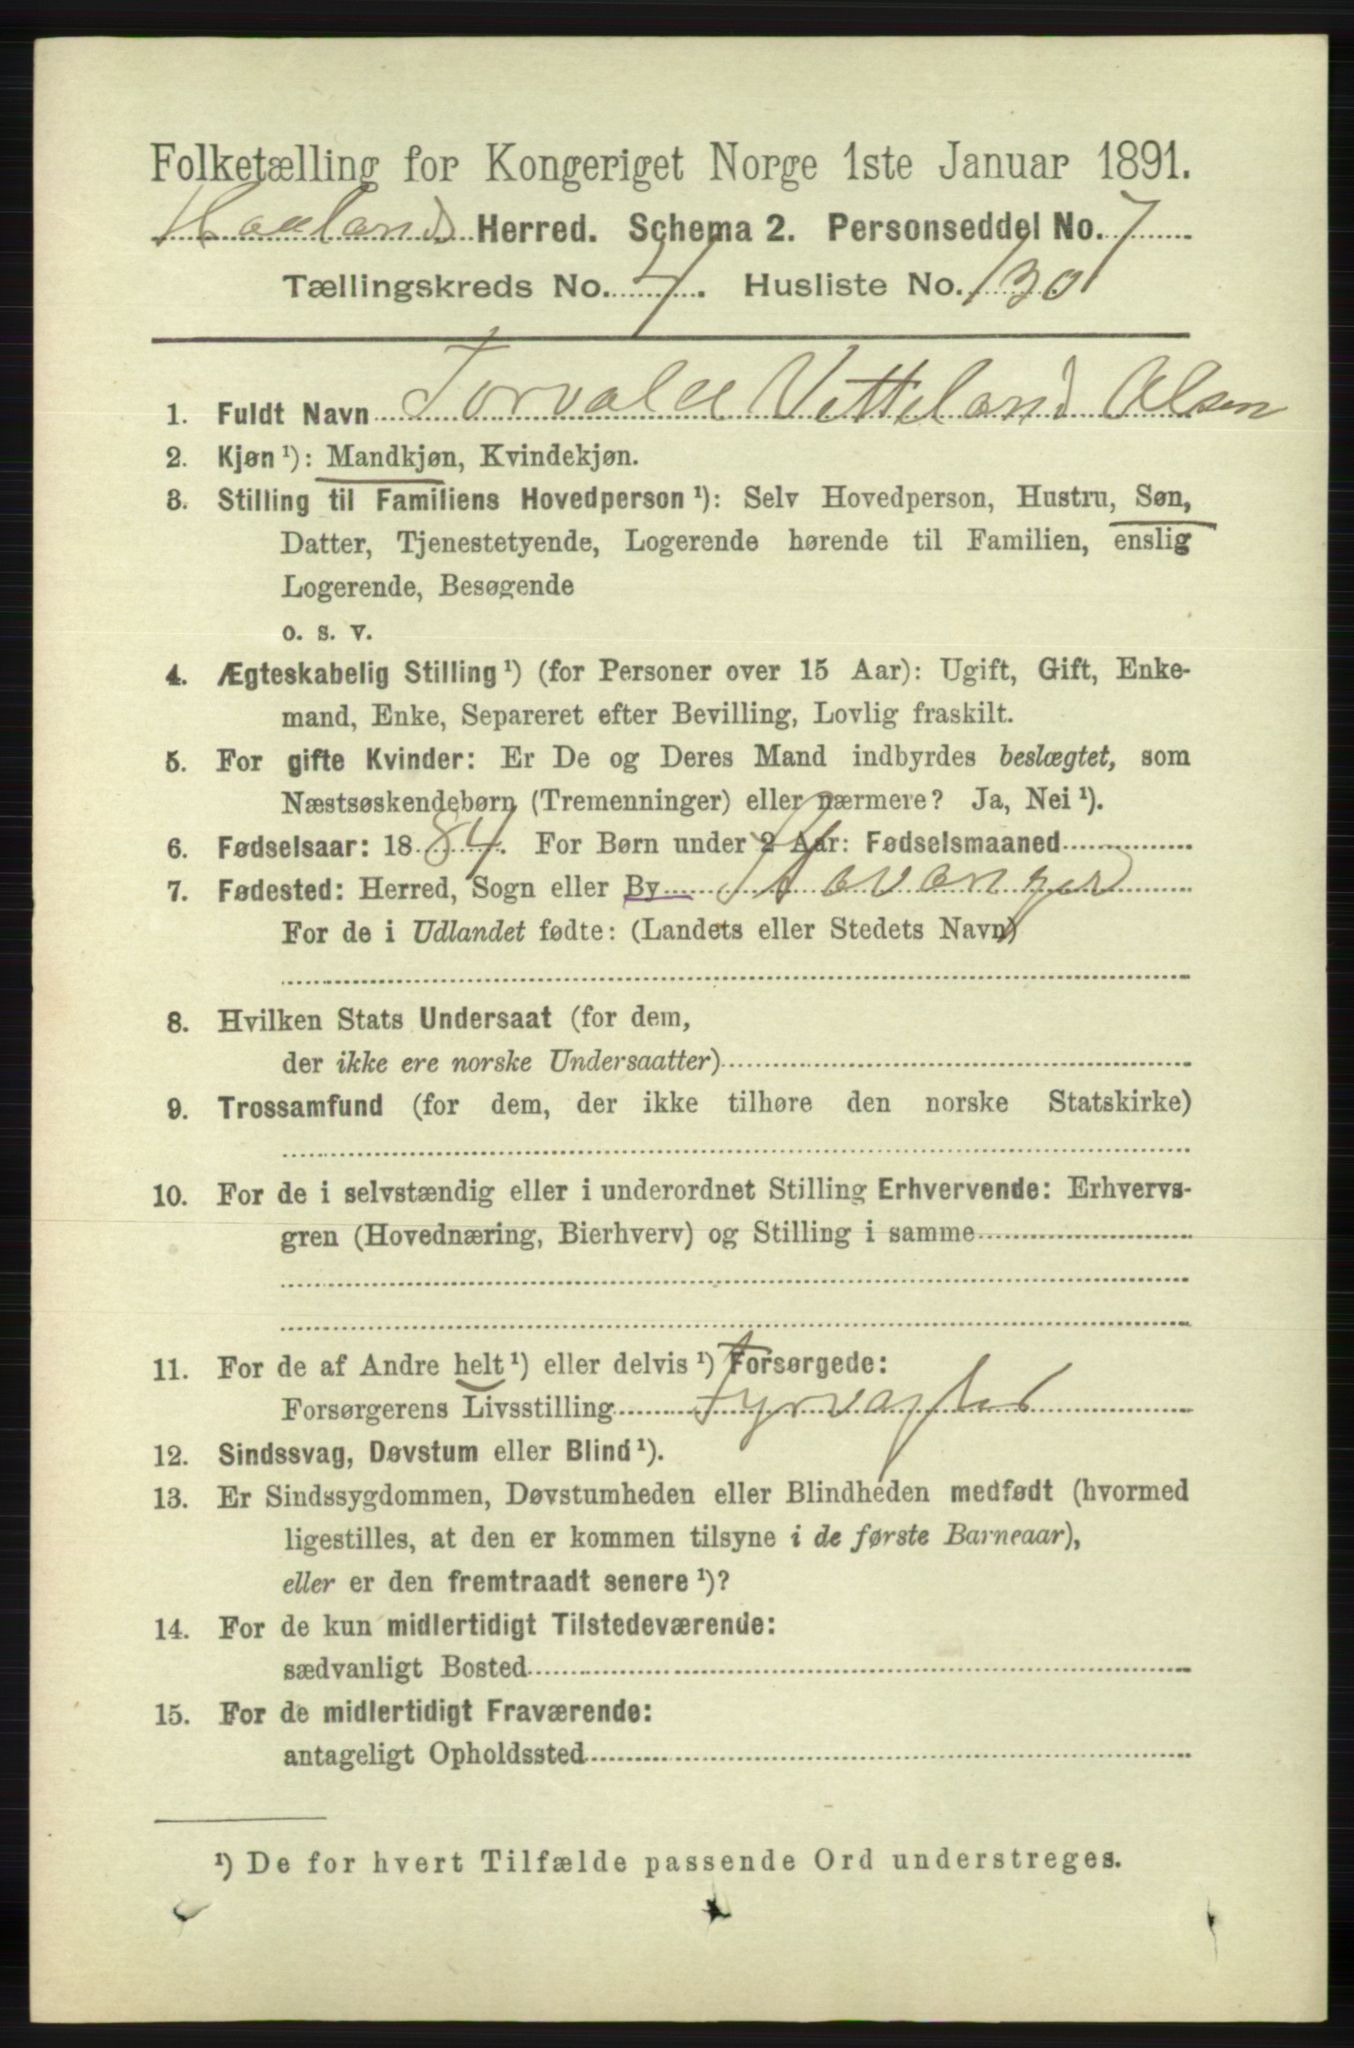 Folketælling for Kongeriget Norge 1ste Januar 1891.
Haalands Herred. Schema 2. Personseddel No. 7
Tællingskreds No. 4. Husliste No. 130
1. Fuldt Navn Torvald Vetteland Olsen
2. Kjøn ¹): Mandkjøn, Kvindekjøn.
3. Stilling til Familiens Hovedperson ¹): Selv Hovedperson, Hustru, Søn,
Datter, Tjenestetyende, Logerende hørende til Familien, enslig
Logerende, Besøgende
o. s. v.
4. Ægteskabelig Stilling ¹) (for Personer over 15 Aar): Ugift, Gift, Enke-
mand, Enke, Separeret efter Bevilling, Lovlig fraskilt.
5. For gifte Kvinder: Er De og Deres Mand indbyrdes beslægtet, som
Næstsøskendebørn (Tremenninger) eller nærmere? Ja, Nei ¹).
6. Fødselsaar: 1884. For Børn under 2 Aar: Fødselsmaaned
7. Fødested: Herred, Sogn eller By Stavanger
For de i Udlandet fødte: (Landets eller Stedets Navn)
8. Hvilken Stats Undersaat (for dem,
der ikke ere norske Undersaatter)
9. Trossamfund (for dem, der ikke tilhøre den norske Statskirke)
10. For de i selvstændig eller i underordnet Stilling Erhvervende: Erhvervs-
gren (Hovednæring, Bierhverv) og Stilling i samme
11. For de af Andre helt ¹) eller delvis ¹) Forsørgede:
Forsørgerens Livsstilling Fyrvagter
12. Sindssvag, Døvstum eller Blind ¹).
13. Er Sindssygdommen, Døvstumheden eller Blindheden medfødt (hvormed
ligestilles, at den er kommen tilsyne i de første Barneaar),
eller er den fremtraadt senere ¹)?
14. For de kun midlertidigt Tilstedeværende:
sædvanligt Bosted
15. For de midlertidigt Fraværende:
antageligt Opholdssted
¹) De for hvert Tilfælde passende Ord understreges.